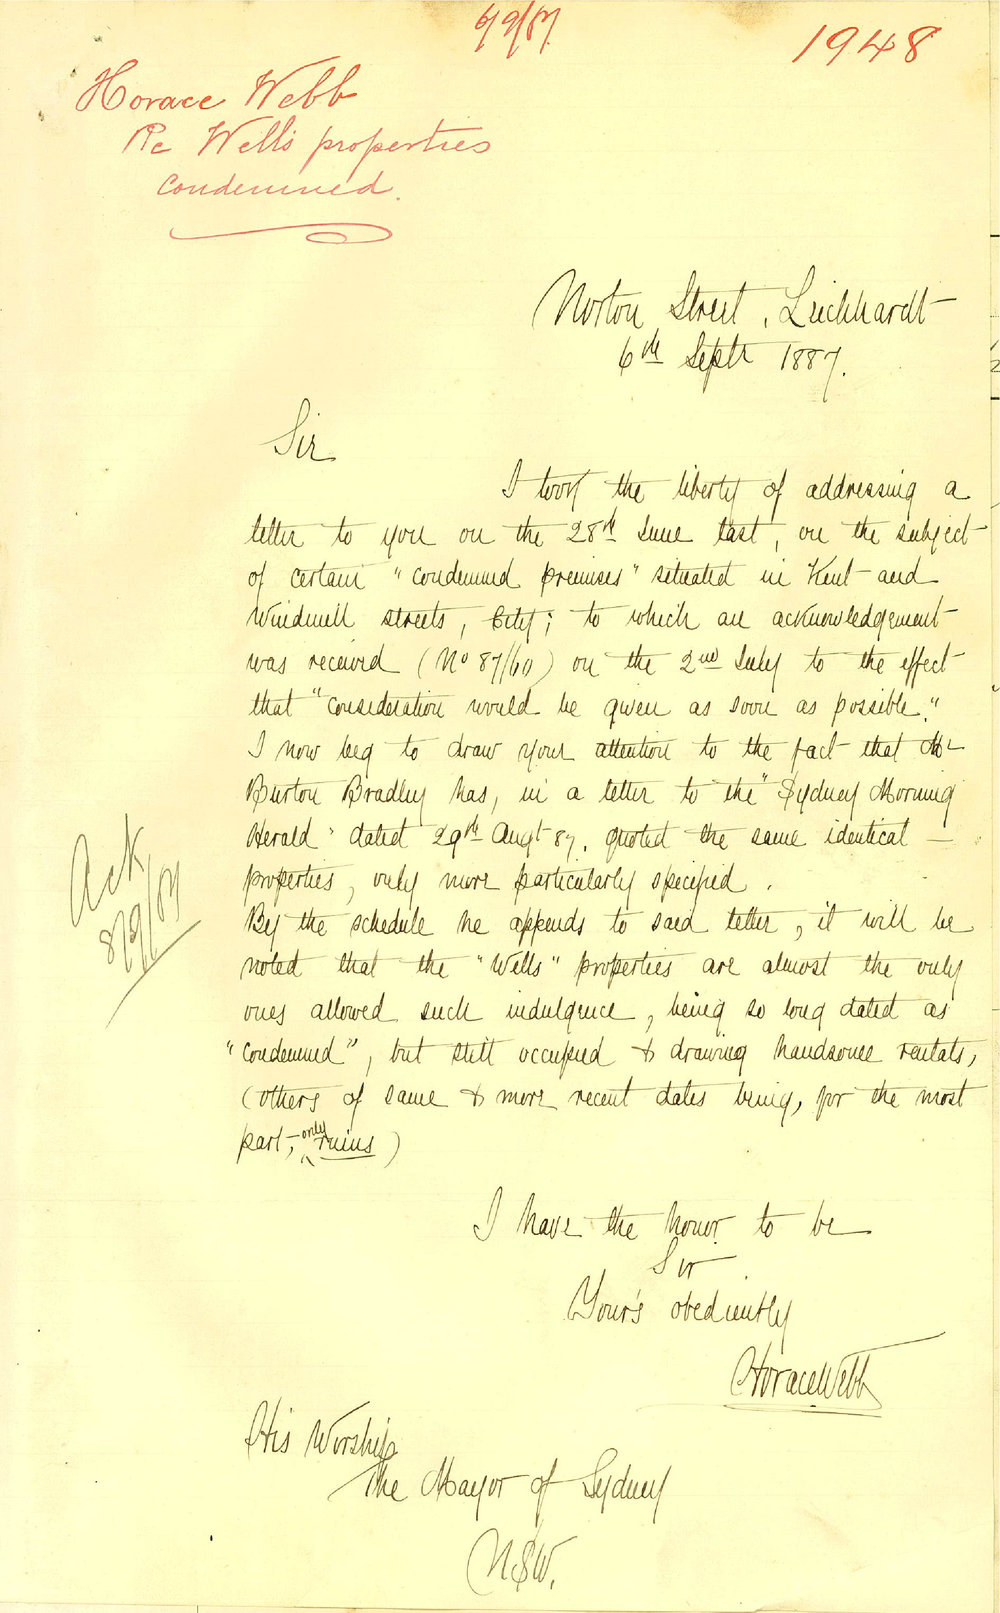 7/9/87.
1948
Horace Webb
Re Wells properties
Condemned.
Norton Street, Leichhardt
6th Septr 1887.
Sir
I took the liberty of addressing a
letter to you on the 28th June last, on the subject
of certain "condemned premises" situated in Kent and
Windmill streets, City; to which an acknowledgement
was received (No 87/60) on the 2nd July to the effect
that "consideration would be given as soon as possible."
I now beg to draw your attention to the fact that Mr
Burton Bradley has, in a letter to the "Sydney Morning
Herald" dated 29th Augt 87. quoted the same identical —
properties, only more particularly specified.
By the schedule he appends to said letter, it will be
noted that the "Wells" properties are almost the only
ones allowed such indulgence, being so long dated as
"condemned", but still occupied & drawing handsome rentals,
(others of same & more recent dates being, for the most
part, only ruins)
Ack
8/9/87
I have the honor to be
Sir
Your's obediently
Horace Webb
His Worship
The Mayor of Sydney
NSW.